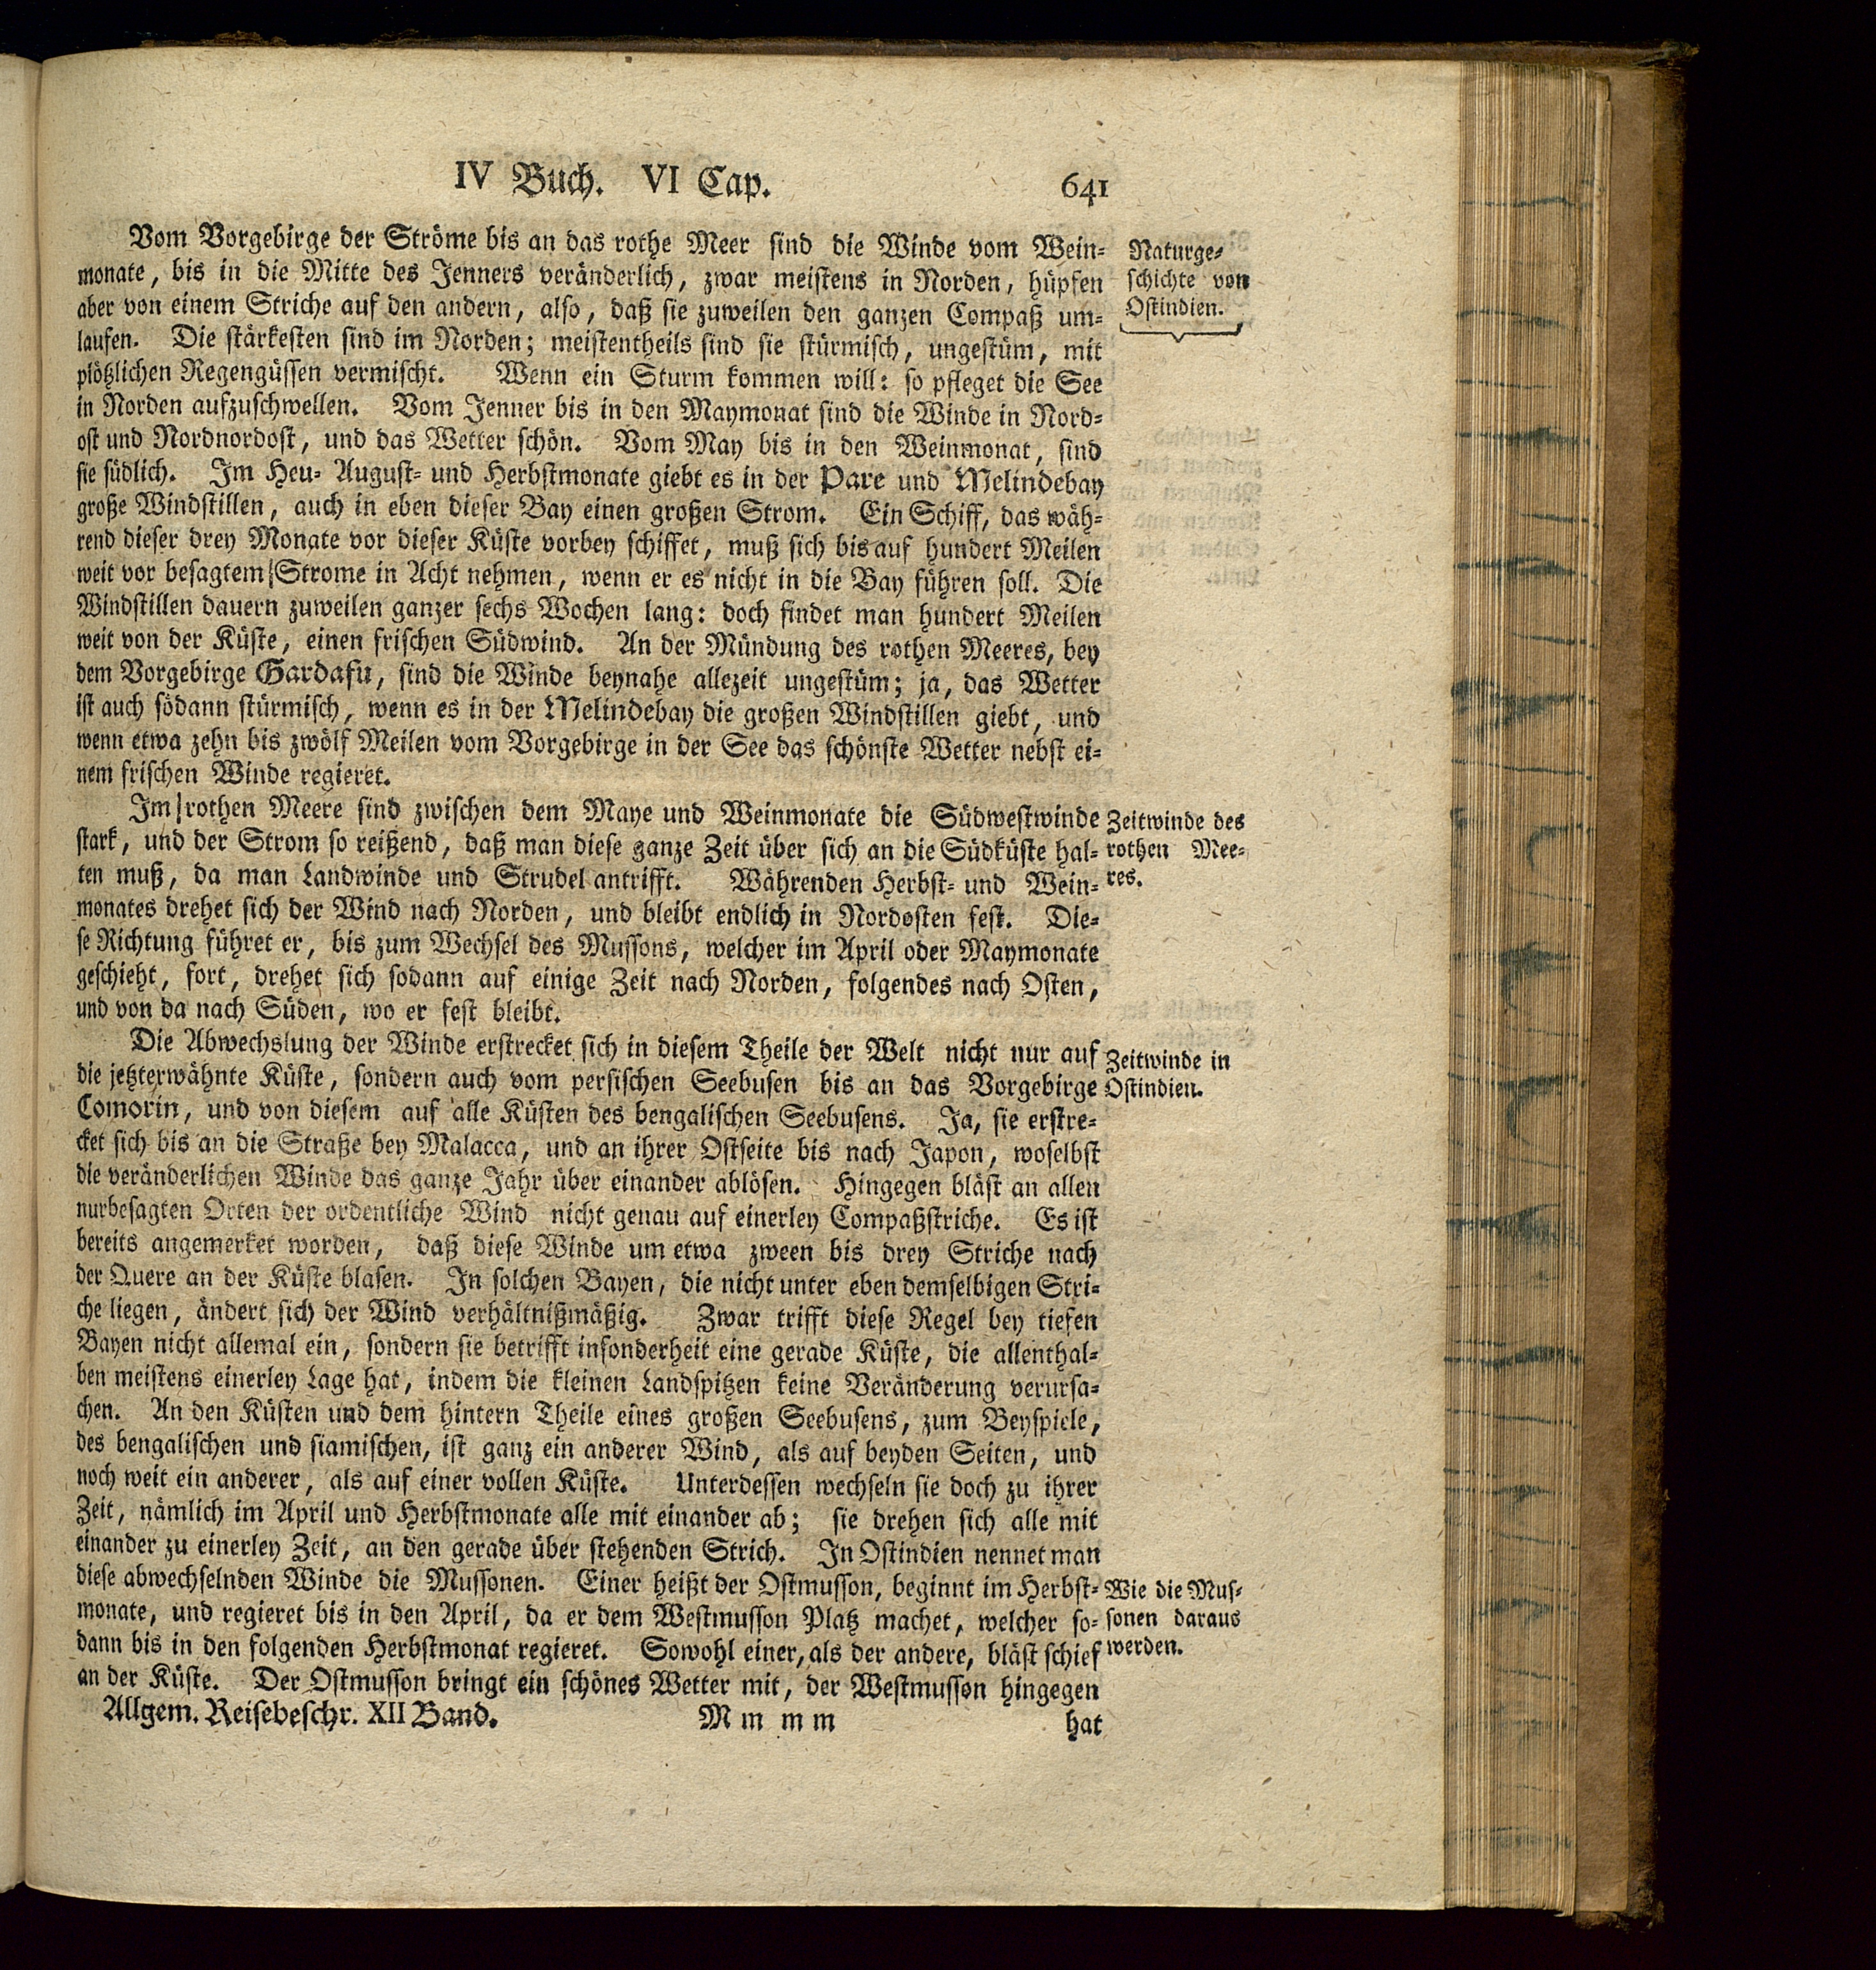 IV Buch. VI Cap. 641
Vom Vorgebirge der Ströme bis an das rothe Meer sind die Winde vom Wein-
monate, bis in die Mitte des Jenners veränderlich, zwar meistens in Norden, hüpfen
aber von einem Striche auf den andern, also, daß sie zuweilen den ganzen Compaß um-
laufen. Die stärkesten sind im Norden; meistentheils sind sie stürmisch, ungestüm, mit
plötzlichen Regengüssen vermischt. Wenn ein Sturm kommen will: so pfleget die See
in Norden aufzuschwellen. Vom Jenner bis in den Maymonat sind die Winde in Nord-
ost und Nordnordost, und das Wetter schön. Vom May bis in den Weinmonat, sind
sie südlich. Im Heu- August- und Herbstmonate giebt es in der Pare und Melindebay
große Windstillen, auch in eben dieser Bay einen großen Strom. Ein Schiff, das wäh-
rend dieser drey Monate vor dieser Küste vorbey schiffet, muß sich bis auf hundert Meilen
weit vor besagtem Strome in Acht nehmen, wenn er es nicht in die Bay führen soll. Die
Windstillen dauern zuweilen ganzer sechs Wochen lang: doch findet man hundert Meilen
weit von der Küste, einen frischen Südwind. An der Mündung des rothen Meeres, bey
dem Vorgebirge Gardafu, sind die Winde beynahe allezeit ungestüm; ja, das Wetter
ist auch södann stürmisch, wenn es in der Melindebay die großen Windstillen giebt, und
wenn etwa zehn bis zwölf Meilen vom Vorgebirge in der See das schönste Wetter nebst ei-
nem frischen Winde regieret.
Naturge-
schichte von
Ostindien.
Im rothen Meere sind zwischen dem Maye und Weinmonate die Südwestwinde
stark, und der Strom so reißend, daß man diese ganze Zeit über sich an die Südküste hal-
ten muß, da man Landwinde und Strudel antrifft. Währenden Herbst- und Wein-
monates drehet sich der Wind nach Norden, und bleibt endlich in Nordosten fest. Die-
se Richtung führet er, bis zum Wechsel des Mussons, welcher im April oder Maymonate
geschieht, fort, drehet sich sodann auf einige Zeit nach Norden, folgendes nach Osten,
und von da nach Süden, wo er fest bleibt.
Zeitwinde des
rothen Mee-
res.
Die Abwechslung der Winde erstrecket sich in diesem Theile der Welt nicht nur auf
die jetzterwähnte Küste, sondern auch vom persischen Seebusen bis an das Vorgebirge
Comorin, und von diesem auf alle Küsten des bengalischen Seebusens. Ja, sie erstre-
cket sich bis an die Straße bey Malacca, und an ihrer Ostseite bis nach Japon, woselbst
die veränderlichen Winde das ganze Jahr über einander ablösen. Hingegen bläst an allen
nurbesagten Orten der ordentliche Wind nicht genau auf einerley Compaßstriche. Es ist
bereits angemerket worden, daß diese Winde um etwa zween bis drey Striche nach
der Quere an der Küste blasen. In solchen Bayen, die nicht unter eben demselbigen Stri-
che liegen, ändert sich der Wind verhältnißmäßig. Zwar trifft diese Regel bey tiefen
Bayen nicht allemal ein, sondern sie betrifft insonderheit eine gerade Küste, die allenthal-
ben meistens einerley Lage hat, indem die kleinen Landspitzen keine Veränderung verursa-
chen. An den Küsten und dem hintern Theile eines großen Seebusens, zum Beyspiele,
des bengalischen und siamischen, ist ganz ein anderer Wind, als auf beyden Seiten, und
noch weit ein anderer, als auf einer vollen Küste. Unterdessen wechseln sie doch zu ihrer
Zeit, nämlich im April und Herbstmonate alle mit einander ab; sie drehen sich alle mit
einander zu einerley Zeit, an den gerade über stehenden Strich. In Ostindien nennet man
diese abwechselnden Winde die Mussonen. Einer heißt der Ostmusson, beginnt im Herbst-
monate, und regieret bis in den April, da er dem Westmusson Platz machet, welcher so-
dann bis in den folgenden Herbstmonat regieret. Sowohl einer, als der andere, bläst schief
an der Küste. Der Ostmusson bringt ein schönes Wetter mit, der Westmusson hingegen
Zeitwinde in
Ostindien.
Wie die Mus-
sonen daraus
werden.
Allgem. Reisebeschr. XII Band. M m m m hat